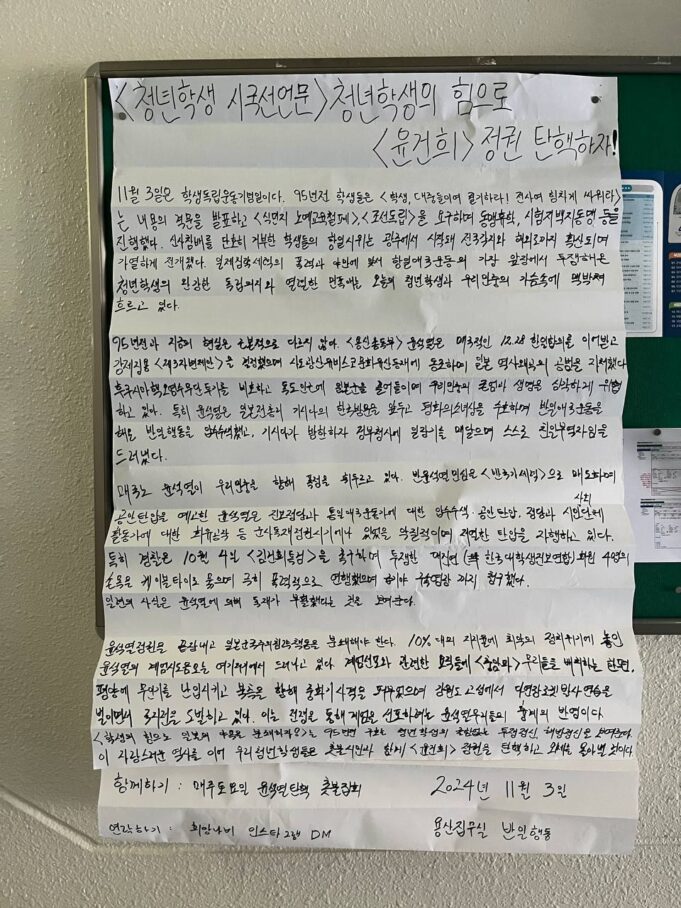 <청년학생 시국선언문> 청년학생의 힘으로
<윤건희> 정권 탄핵하자!
11월 3일은 학생독립운동기념일이다. 95년전 학생들은 <학생, 대중들이여 궐기하라! 전사여 힘차게 싸워라>
는 내용의 격문을 발표하고 <식민지 노예교육철폐>, <조선독립>을 요구하며 동맹휴학, 시험지백지동맹 등을
진행했다. 신사참배를 단호히 거부한 학생들의 항일시위는 광주에서 시작돼 전국각지와 해외로까지 확산되며
가열하게 전개됐다. 일제침략세력의 폭력과 만행에 맞서 항일애국운동의 가장 앞장에서 투쟁해온
청년학생의 완강한 독립의지와 열렬한 민족애는 오늘의 청년학생과 우리민중의 가슴속에 맥박쳐
흐르고 있다.
95년전과 지금의 현실은 근본적으로 다르지 않다. <용산총독부> 윤석열은 매국적인 12.28 한일합의를 이어받고
강제징용 <제3자변제안>을 결정했으며 사도광산유네스코문화유산등재에 동조하며 일본 역사왜곡의 공범을 자처했다.
후쿠시마핵오염수무단투기를 비호하고 독도인근에 일본군을 끌어들이며 우리민중의 존엄과 생명을 심각하게 위협
하고 있다. 특히 윤석열은 일본전총리 기시다의 한국방문을 앞두고 평화의소녀상을 수호하며 반일애국운동을
해온 반일행동을 압수수색했고, 기시다가 방한하자 정부청사에 일장기를 매달으며 스스로 친일부역자임을
드러냈다.
매국노 윤석열이 우리민중을 향해 폭정을 휘두르고 있다. 반윤석열민심을 <반국가세력>으로 매도하며
공안탄압을 예고한 윤석열은 진보정당과 통일애국운동가에 대한 압수수색·공안탄압, 정당과 시민사회단체
활동가에 대한 회유공작 등 군사독재정권시기에나 있었을 악질적이며 저열한 탄압을 자행하고 있다.
특히 경찰은 10월 4일 <김건희특검>을 촉구하며 투쟁한 대진연 (한국대학생진보연합)회원 4명의
손목을 케이블타이로 묶으며 극히 폭력적으로 연행했으며 구속영장까지 청구했다.
일련의 사실은 윤석열에 의해 독재가 부활했다는 것을 보여준다.
윤석열정권을 끝장내고 일본군국주의침략책동을 분쇄해야 한다. 10%대의 지지율에 최악의 정치위기에 놓인
윤석열의 계엄시도음모는 여기저기서 드러나고 있다. 계엄선포와 관련한 요직들에 <충암파> 우리들을 배치하는 한편,
평양에 무인기를 난입시키고 북측을 향해 중화기사격을 퍼부었으며 강원도 고성에서 다연장로켓발사연습을
벌이면서 국지전을 도발하고 있다. 이는 전쟁을 통해 계엄을 선포하려는 윤석열무리들의 흉계의 반영이다.
이 자랑스러운 역사를 이어 우리청년학생들은 촛불시민과 함께 <윤건희> 정권을 탄핵하고 것이다
함께하기 : 매주토요일 윤석열탄핵 촛불집회 2024년 11월 3일
연락하기 : 희망나비 인스타그램 DM 용산집무실 반일행동